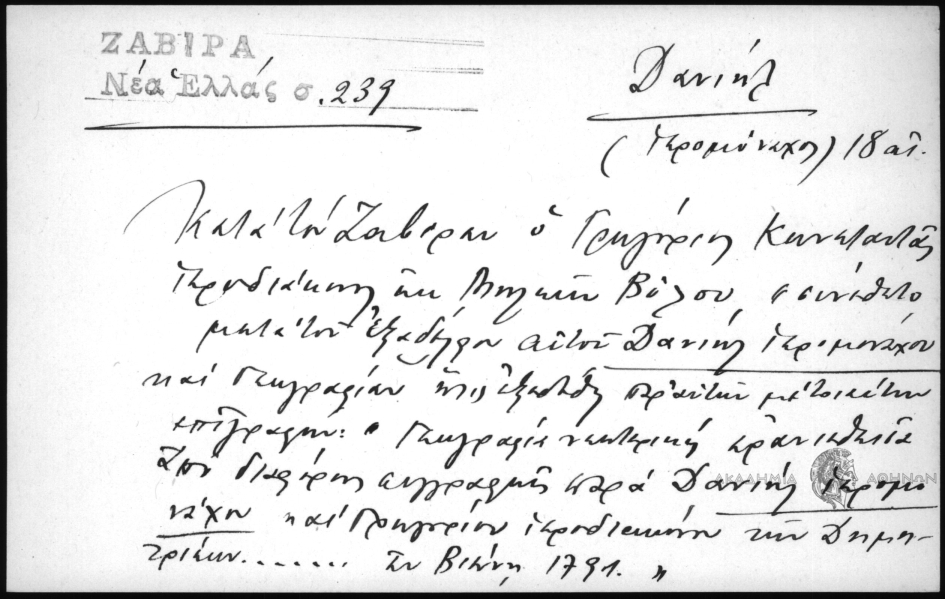 ΖΑΒΙΡΑ
Νέα Ἑλλάς σ. 239
Δανιήλ
(ἱερομόναχος) 18 αἰ.
Κατὰ τὸν Ζαβίραν ὁ Γρηγόριος Κωνσταντᾶς
ἱεροδιάκονος ἐκ Βόλου συνέθετο
μετὰ τοῦ ἐξαδέλφου αὐτοῦ Δανιήλ ἱερομονάχου
καὶ Γεωγραφίαν ἥτις ἐξεδόθη
ἐπιγραφήν: "Γεωγραφία νεωτερική ἐρανισθεῖσα
ἀπὸ διαφόρους συγγραφεῖς παρά Δανιήλ ἱερομο
νάχου καὶ Γρηγορίου ἱεροδιακόνου τῶν Δημη-
τριέων....... Ἐν Βιέννῃ 1791."
ΑΚΑΔΗΜΙΑ ΑΘΗΝΩΝ